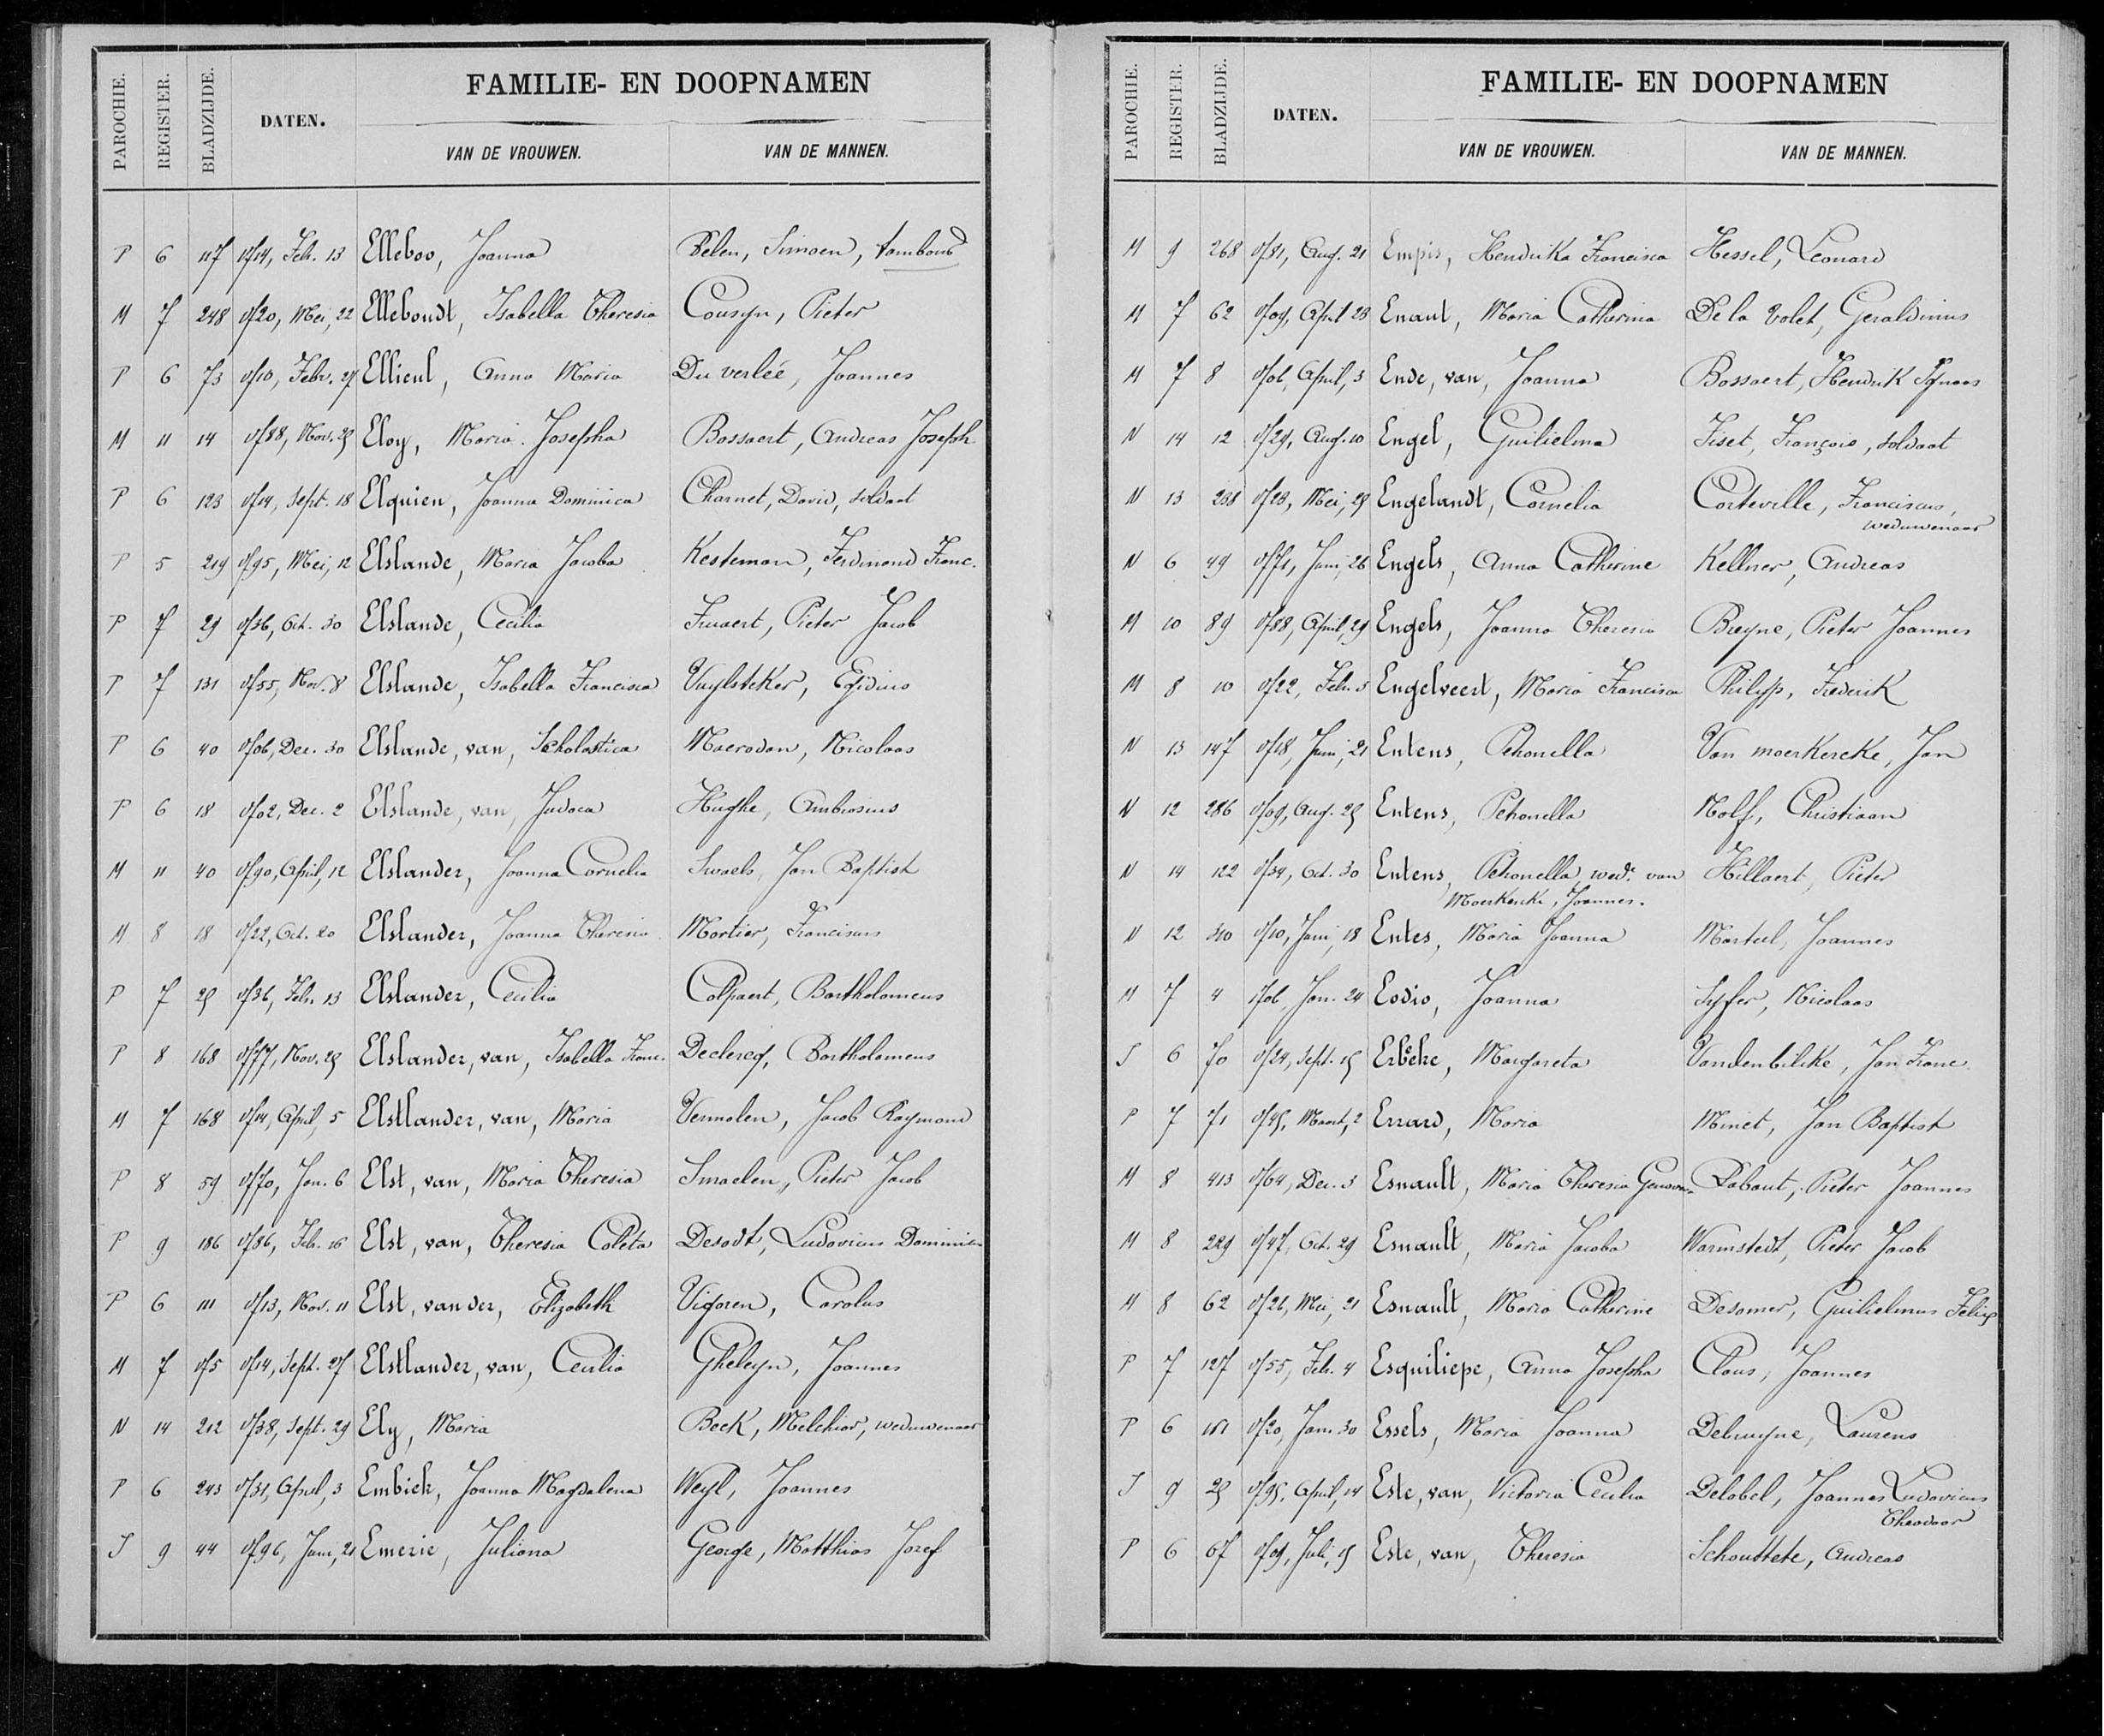 PAROCHIE. REGISTER. BLADZIJDE. DATEN. FAMILIE- EN DOOPNAMEN
VAN DE VROUWEN. VAN DE MANNEN.
P 6 117 1714, Feb. 13 Elleboo, Joanna Belen, Simoen, tambour
M 7 248 1720, Mei, 22 Elleboudt, Isabella Theresia Cousyn, Pieter
P 6 73 1710, Febr. 27 Ellieul, Anna Maria Du verlée, Joannes
M 11 14 1788, Nov. 25 Eloy, Maria Josepha Bossaert, Andreas Joseph
P 6 123 1714, Sept. 18 Elquien, Joanna Dominica Charnet, David, soldaat
P 5 219 1795, Mei, 12 Elslande, Maria Jacoba Kesteman, Ferdinand Franc.
P 7 29 1736, Oct. 30 Elslande, Cecilia Pieter Jacob
P 7 131 1755, Nov. 8 Elslande, Isabella Francisca Vuylsteker, Egidius
P 6 40 1706, Dec. 30 Elslande, van, Scholastica Maerodan, Nicolaas
P 6 18 1702, Dec. 2 Elslande, van, Judoca Hughe, Ambrosius
M 11 40 1790, April, 12 Elslander, Joanna Cornelia Swaels, Jan Baptist
M 8 18 1722, Oct. 20 Elslander, Joanna Theresia Mortier, Franciscus
P 7 25 1736, Feb. 13 Elslander, Cecilia Colpaert, Bartholomeus
P 8 168 1777, Nov. 25 Elslander, van, Isabella Franc. Declercq, Bartholomeus
M 7 168 1714, April, 5 Elstlander, van, Maria Vermolen, Jacob Raymond
P 8 59 1770, Jan. 6 Elst, van, Maria Theresia Smaelen, Pieter Jacob
P 9 186 1786, Feb. 16 Elst, van, Theresia Coleta Desodt, Ludovicus Dominicus
P 6 111 1713, Nov. 11 Elst, vander, Elizabeth Vigoren, Carolus
M 7 175 1714, Sept. 27 Elstlander, van, Cecilia Gheleyn, Joannes
N 14 212 1738, Sept. 29 Ely, Maria Beck, Melchior, weduwenaar
P 6 243 1731, April, 3 Embich, Joanna Magdalena Weyl, Joannes
J 9 44 1796, Juni, 21 Emerie, Juliana George, Matthias Josef
PAROCHIE. REGISTER. BLADZIJDE. DATEN. FAMILIE- EN DOOPNAMEN
VAN DE VROUWEN. VAN DE MANNEN.
M 9 268 1781, Aug. 21 Empis, Hendrika Francisca Hessel, Leonard
M 7 62 1709, April 23 Enaut, Maria Catharina De la Volet, Geraldinus
M 7 8 1706, April, 3 Ende, van, Joanna Bossaert, Hendrik Ignaas
N 14 12 1729, Aug. 10 Engel, Guilielma Fiset, François, soldaat
N 13 238 1723, Mei, 29 Engelandt, Cornelia Corteville, Franciscus,
weduwenaar
N 6 49 1771, Juni, 26 Engels, Anna Catherine Kellner, Andreas
M 10 89 1788, April, 29 Engels, Joanna Theresia Breyne, Pieter Joannes
M 8 10 1722, Feb. 5 Engelveert, Maria Francisca Philipp, Frederik
N 13 147 1718, Juni, 21 Entens, Petronella Van moerkercke, Jan
N 12 286 1709, Aug. 25 Entens, Petronella Nolf, Christiaan
N 14 122 1734, Oct. 30 Entens, Petronella wede. van Hillaert, Pieter
Moerkercke, Joannes.
N 12 310 1710, Juni, 18 Entes, Maria Joanna Marteel, Joannes
M 7 4 1706, Jan. 24 Eodio, Joanna Syfer, Nicolaas
J 6 70 1724, Sept. 15 Erbeke, Margareta Vandenbilcke, Jan Franc.
P 7 71 1745, Maart, 2 Errard, Maria Minet, Jan Baptist
M 8 413 1764, Dec. 3 Esnault, Maria Theresia Genoveva Rabaut, Pieter Joannes
M 8 229 1747, Oct. 29 Esnault, Maria Jacoba Warmstedt, Pieter Jacob
M 8 62 1726, Mei, 21 Esnault, Maria Catherine Desomer, Guilielmus Felix
P 7 127 1755, Feb. 4 Esquiliepe, Anna Josepha Claus, Joannes
P 6 1720, Jan. 30 Essels, Maria Joanna Debruyne, Laurens
J 9 25 1795, April, 14 Este, van, Victoria Cecilia Delobel, Joannes Ludovicus
Theodoor
P 6 67 1709, Juli, 15 Este, van, Theresia Schouttete, Andreas